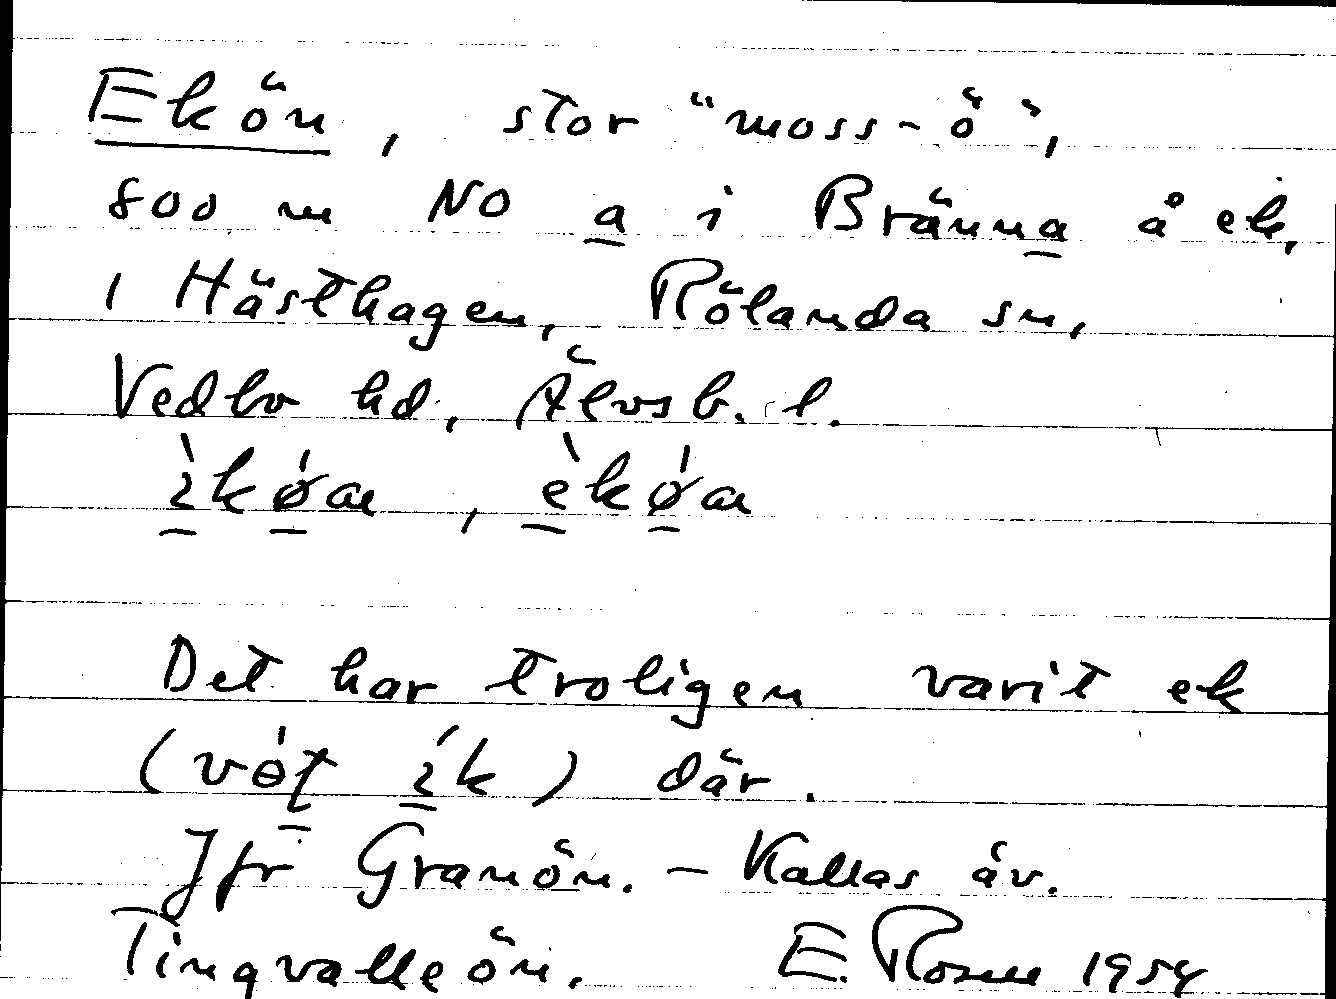 Ekön, stor "moss-ö",
800 m NO a i Bränna å ek,
i Hästhagen, Rölanda sn,
Vedbo hd, Älvsb. l.
Det har troligen varit ek
där.
Jfr Granön. – Kallas äv.
Tingvalleön. E. Rosell 1954